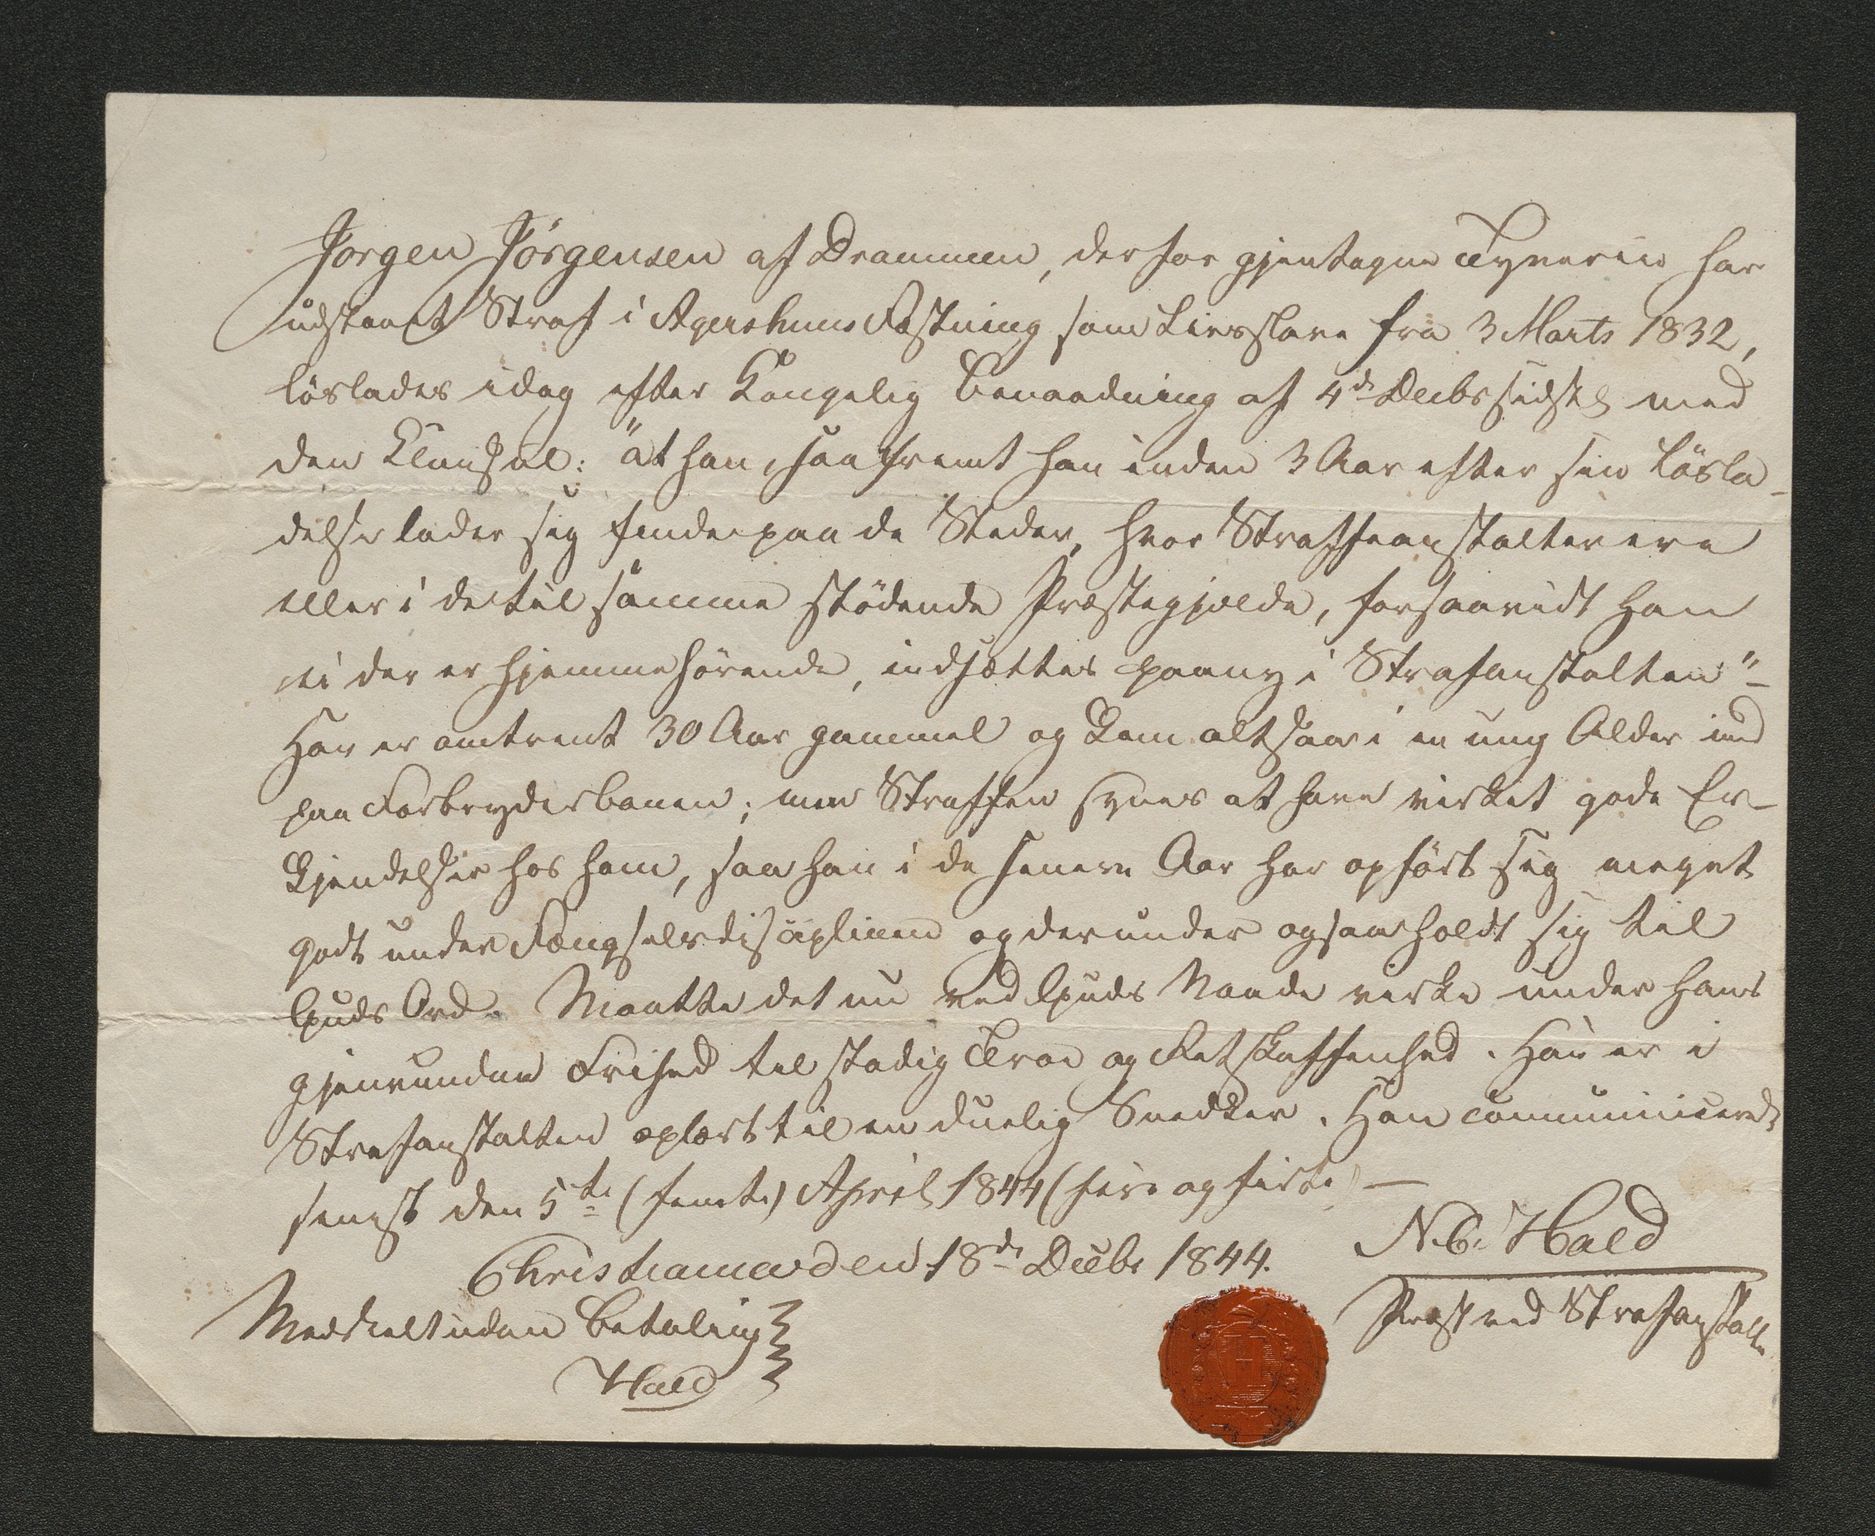 Jørgen Jørgensen af Drammen, der for gjentagne Tyverier har
udstaaet Straf i Agershuus Fæstning som Livsslave fra 3 Marts 1832,
løslades idag efter Kongelig Benaadning af 4de Decbr sidstl. med
den Clausul: "at han, saafremt han inden 3 Aar efter sin Løsla-
delse lader sig finde paa de Steder, hvor Straffeanstalter ere
eller i de til samme stødende Præstegjælde, forsaavidt han
ei der er hjemmehørende, indsættes paany i Strafanstalten"-
Han er omtrent 30 Aar gammel og kom altsaa i en ung Alder ind
paa Forbryderbanen; men Straffen synes at have virket gode Er-
kjendelser hos ham, saa han i de senere Aar har opført sig meget
godt under Fængselsdisciplinen og derunder ogsaa holdt sig til
Guds Ord. Maatte det nu ved Guds Naade virke under hans
gjenvundne Frihed til stadig Troe og Retskaffenhed. Han er i
Strafanstalten oplært til en duelig Snedker. Han communicerede
senest den 5te (femte) April 1844 (fire og firti) —
Christiania den 18de Decbr 1844.
N. C. Hald
Præst ved Strafanstalt.
Meddeelt uden Betaling
Hald